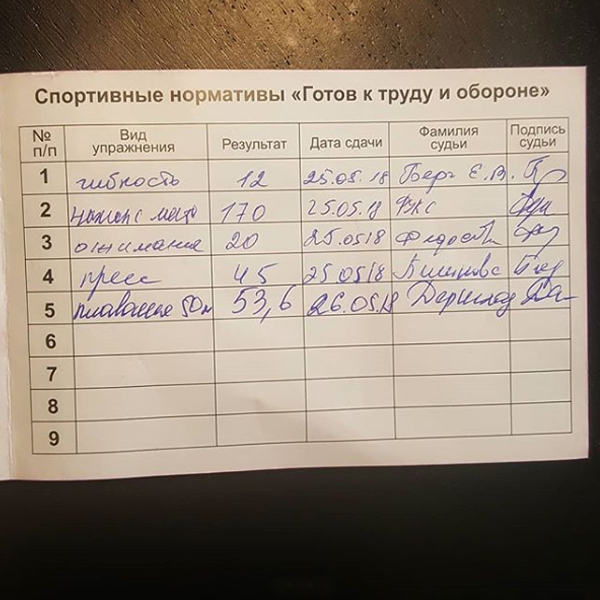 Спортивные нормативы «Готов к труду и обороне»
№ п/п Вид упражнения Результат Дата сдачи Фамилия судьи Подпись судьи
1 гибкость 12 25.05.18 Берг Е.В.
2 170 25.05.18
3 отжимания 20 25.0518
4 пресс 45 25.0518
5 плавание 50м 53,6 26.05.18
6
7
8
9